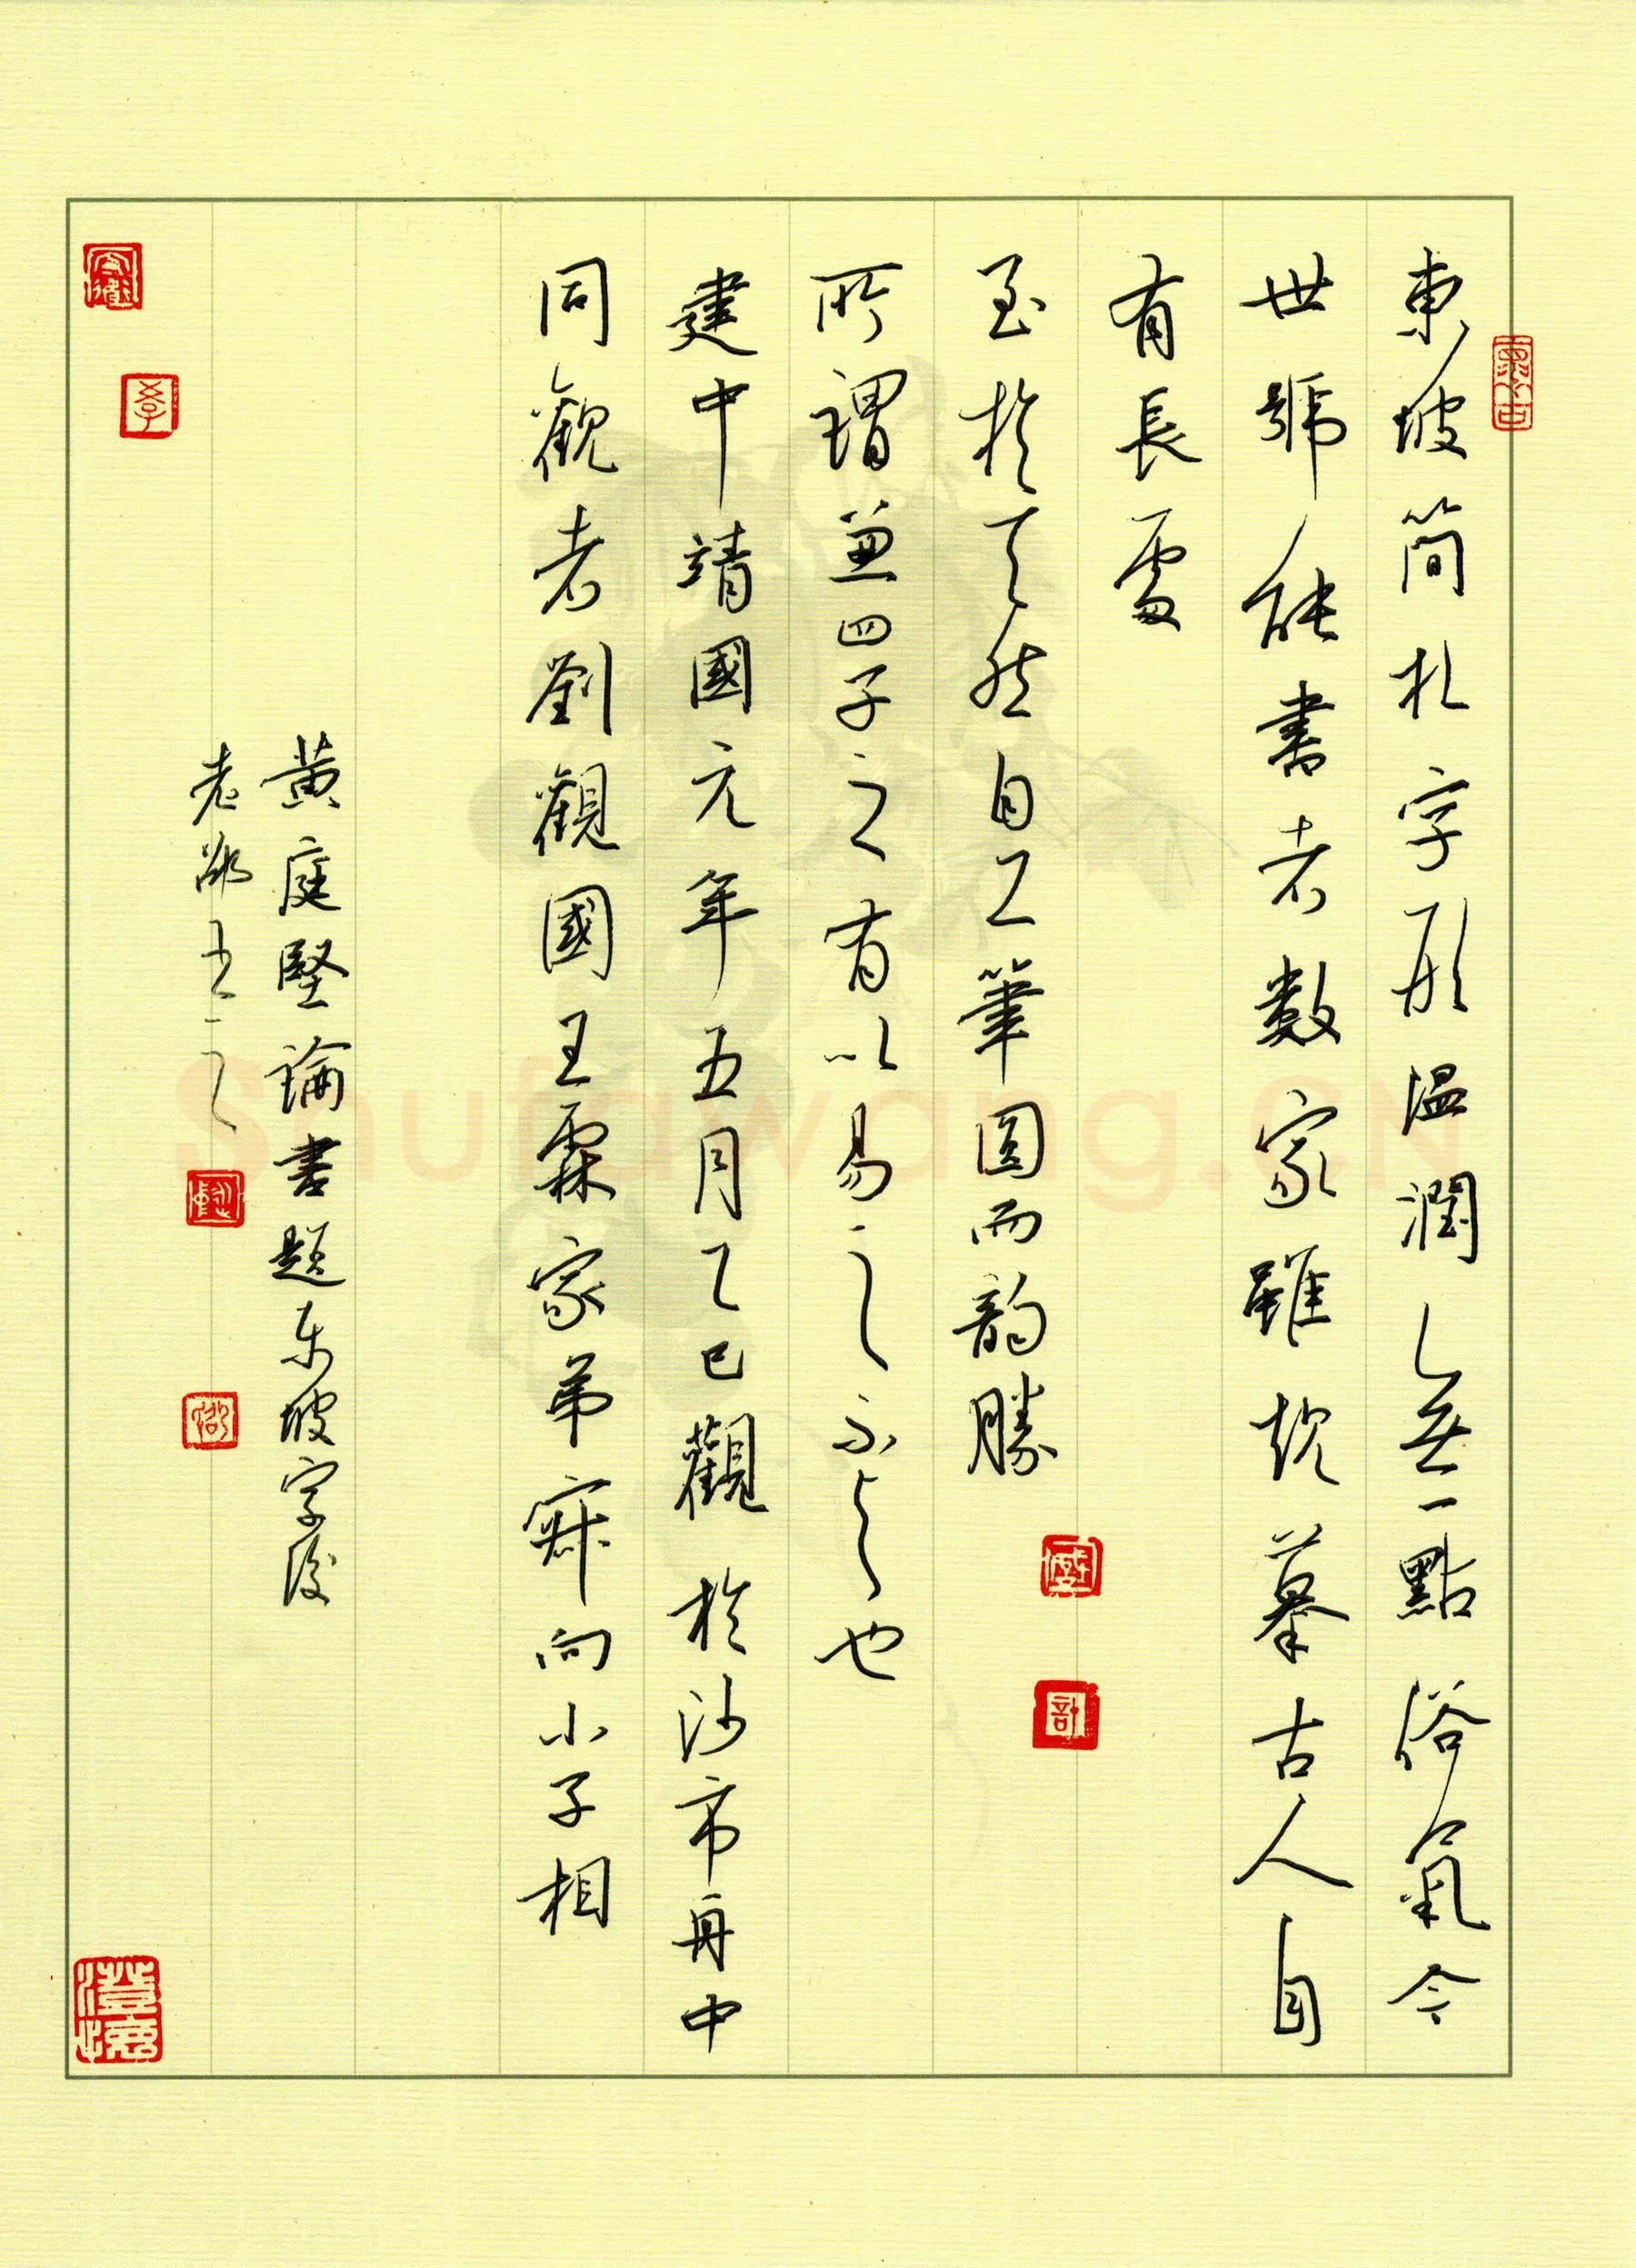 東坡簡札字形温潤無一點俗氣今
世號能書者數家雖規摹古人自
有長處
至於天然自工筆圓而韵勝
所謂兼四子之有以易之不與也
建中靖國元年五月乙巳觀於沙市舟中
同觀者劉觀國王霖家弟叔向小子相
黄庭堅論書題东坡字後
老鄧书之
Shufawang.CN